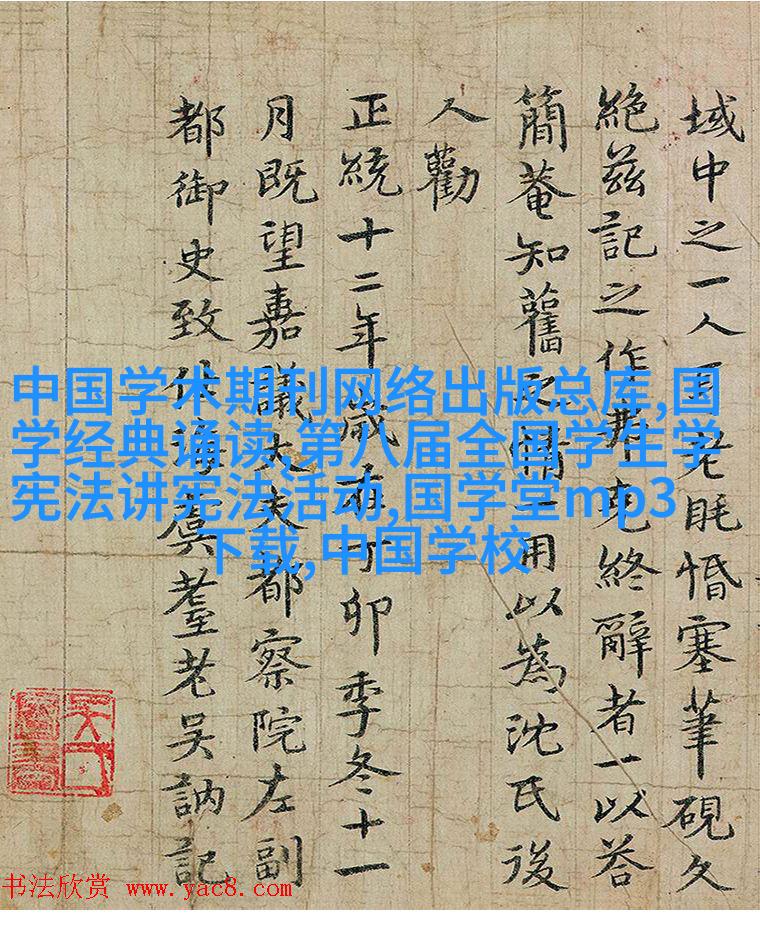 域中之一人耳老眊惛塞筆硯久
絕茲記之作弗克終辭者一以荅
簡菴知舊之情二用以為沈氏後
人勸
正統十二年歲在丁卯季冬十一
月既望嘉議大夫都察院左副
都御史致仕海虞耋老吳訥記
中国学术期刊网络出版总库,国
学经典诵读,第八届全国学生学
宪法讲宪法活动,国学堂mp3
下载,中国学校
书法欣赏 www.yac8.com